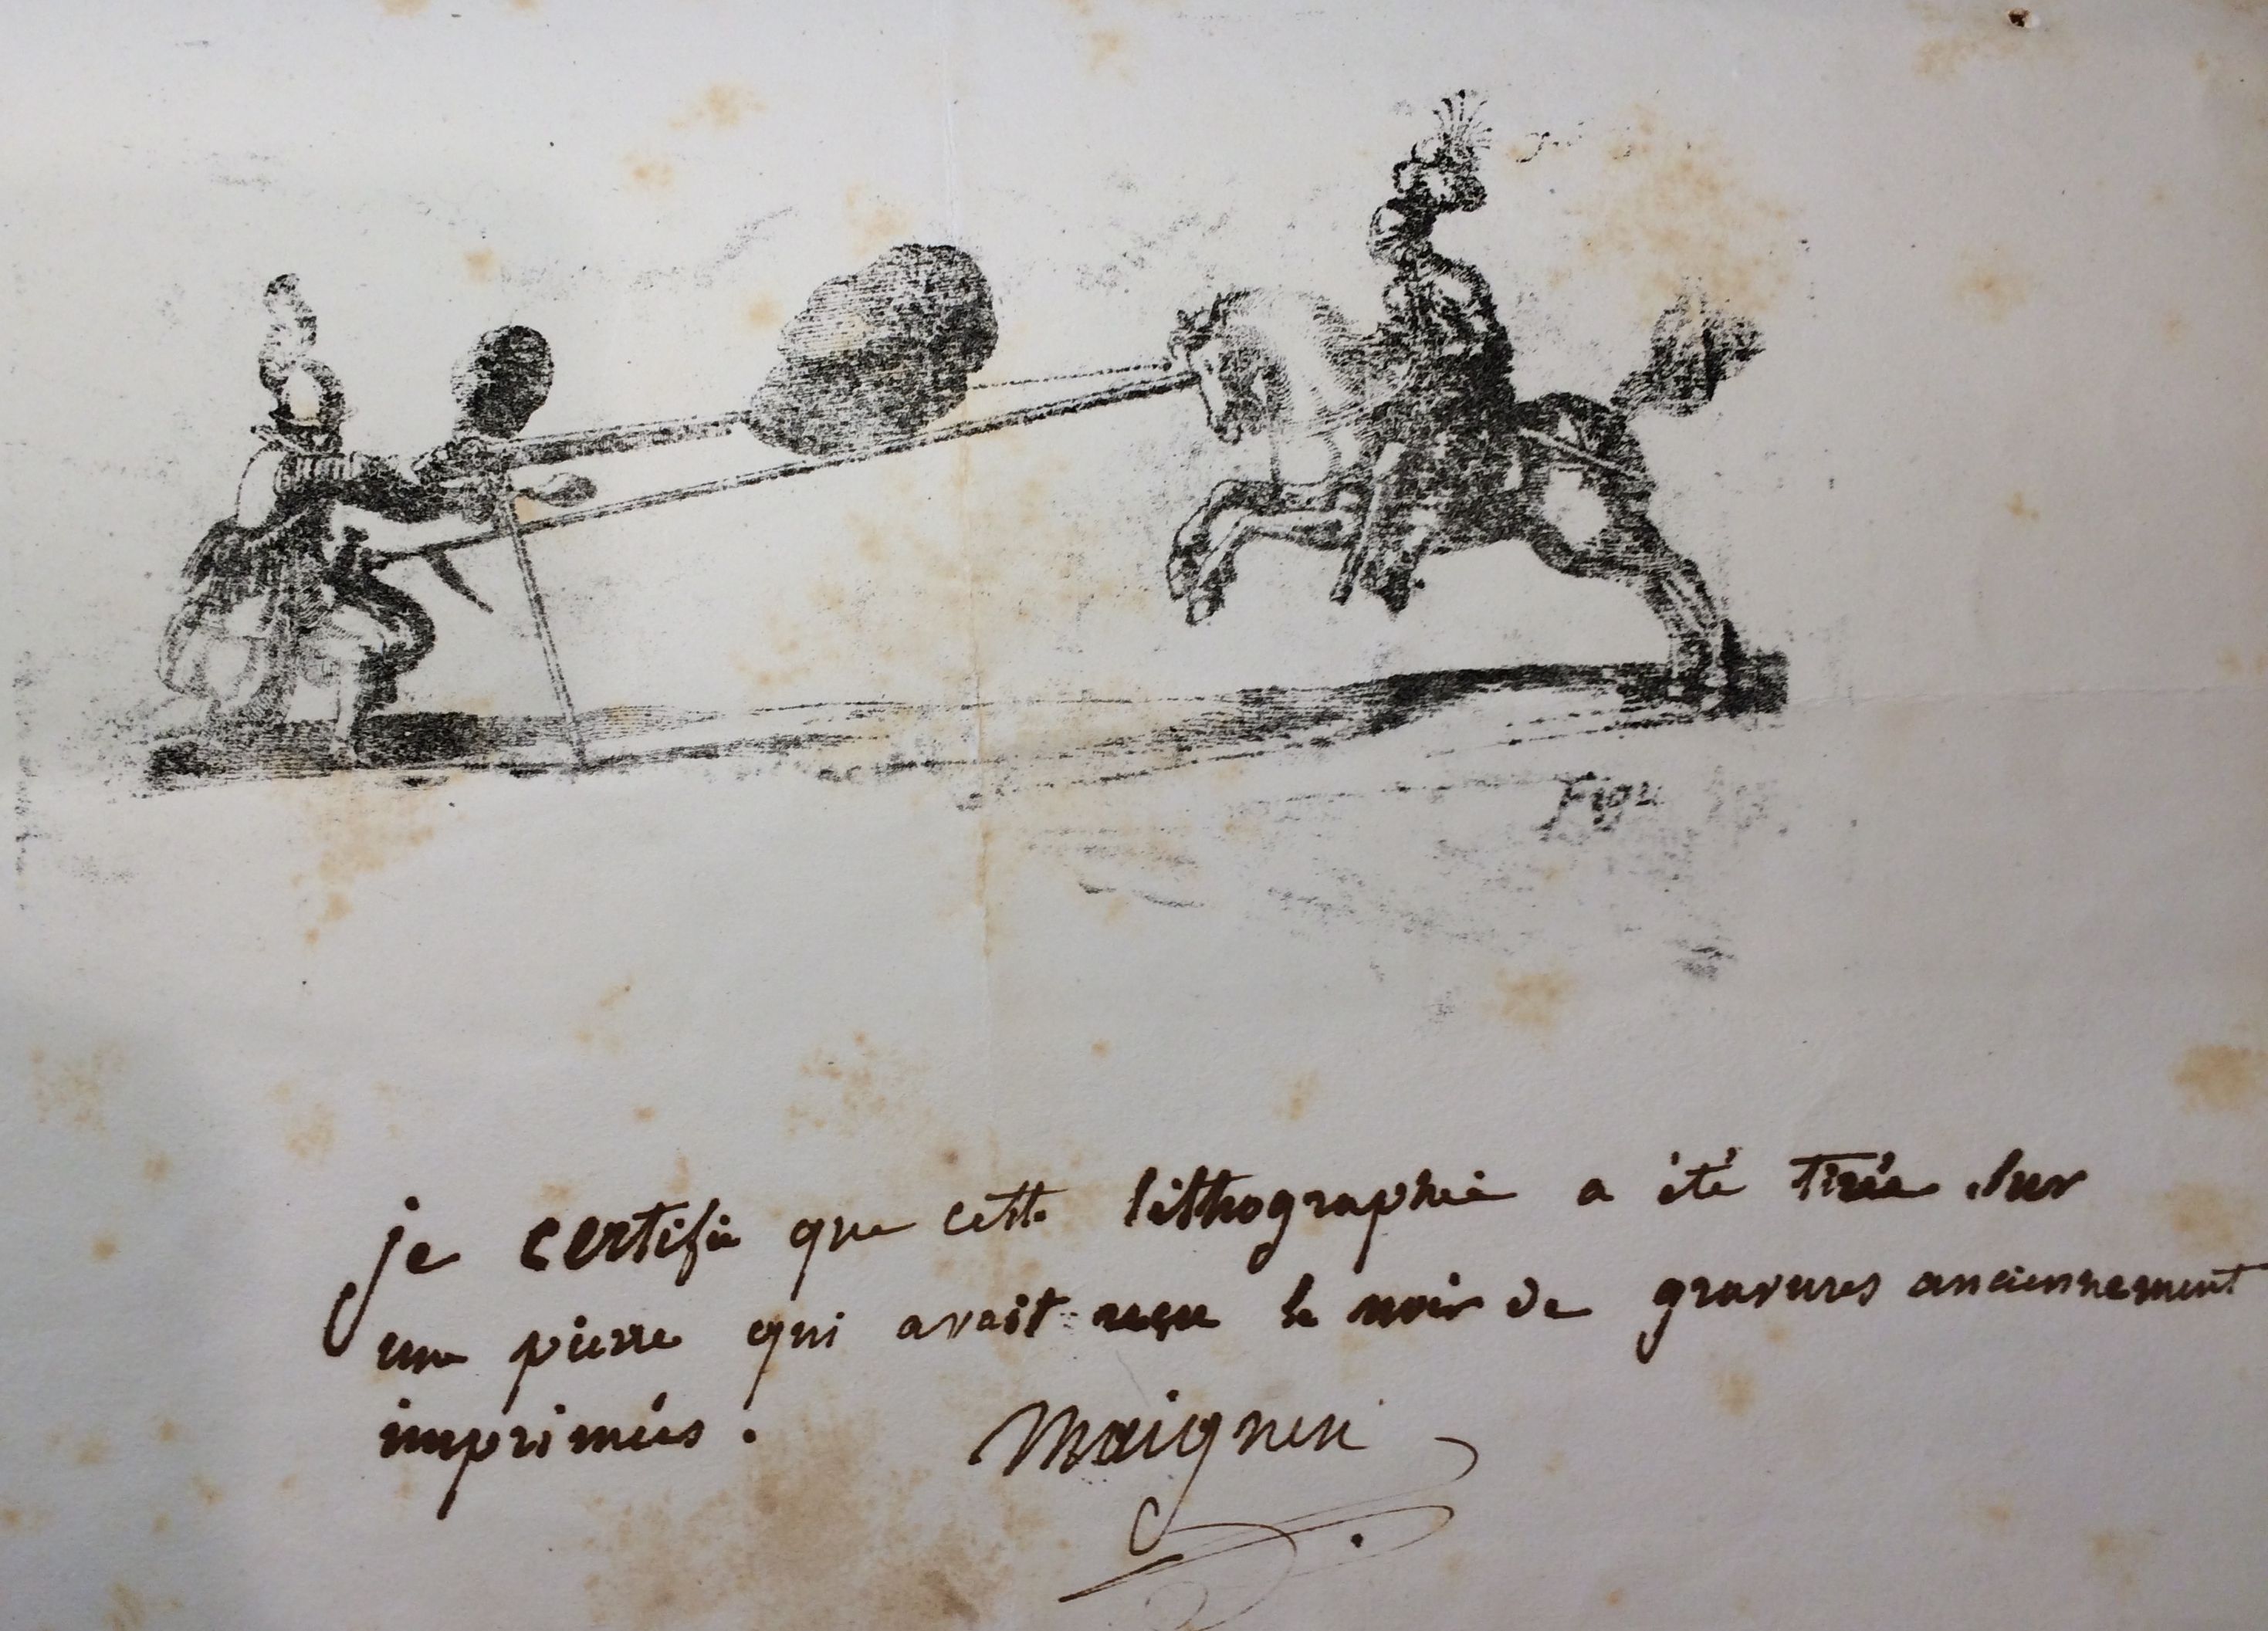 Figu
je certifie que cette lithographie a été tirée sur
une pierre qui avait reçu le noir de gravures anciennement
imprimées.
Maignen